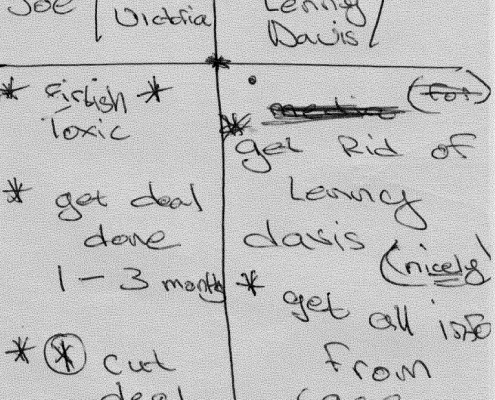 Joe
Victoria
Lenny
Davis
* Firtish *
Toxic
* get deal
done
1 - 3 months
* * cut
deal
(for)
* get Rid of
Lenny
davis
(nicely)
* get all info
from